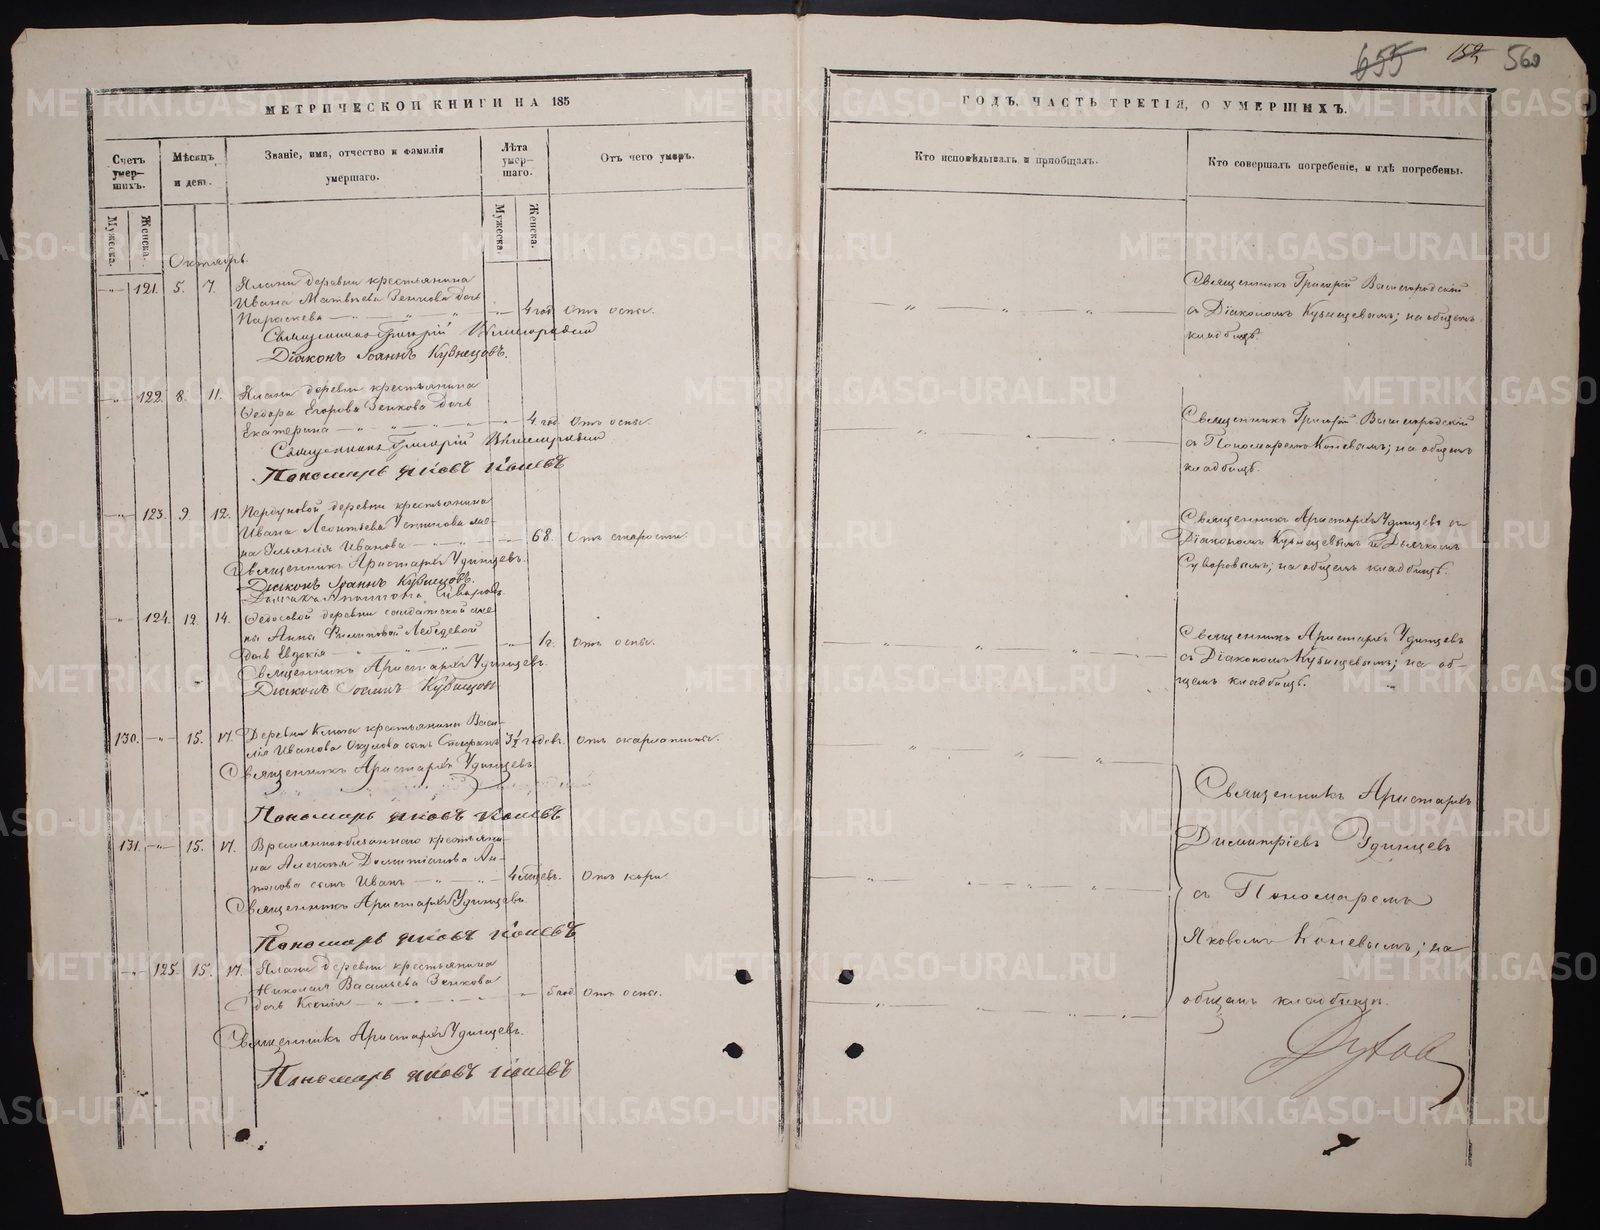 655 152 560
МЕТРИЧЕСКОЙ КНИГИ НА 185
Счетъ умер-шихъ.
Мѣсяцъ и день.
Званіе, имя, отчество и фамилія умершаго.
Лѣта умер-шаго.
Отъ чего умеръ.
Мужеска. Женска.
Мужеска Женска.
Октябрь.
121. 5. 7. Ялани деревни крестьянина
Ивана Матвѣева Зенкова дочь
Параскева 4 год Отъ оспы.
Священникъ Григорій Вышегородскій
Діаконъ Іоаннъ Кузнецовъ.
122. 8. 11. Ялани деревни крестьянина
Ѳедора Егорова Зенкова дочь
Екатерина 4 год Отъ оспы.
Священникъ Григорій Вышегородскій
Пономарь Яковъ Коневъ
123. 9. 12. деревни крестьянина
Ивана Леонтьева Устинова же-
на Ульянія Иванова 68. Отъ старости.
Священникъ Аристархъ Удинцевъ.
Діаконъ Іоаннъ Кузнецовъ.
Суворовъ.
124. 12. 14. Ѳедосовой деревни солдатской же-
ны Анны Филиповой Лебедевой
дочь Евдокія 1 г. Отъ оспы.
Священникъ Аристархъ Удинцевъ.
Діаконъ Іоаннъ Кузнецовъ
130. 15. 17. Деревни Ключа крестьянина Васи-
лія Иванова Окулова сынъ 3½ годовъ. Отъ скарлатины.
Священникъ Аристархъ Удинцевъ.
Пономарь Яковъ Коневъ
131. 15. 17. Временнообязаннаго крестьяни-
на Алексѣя
сынъ Иванъ 4 мѣсцевъ. Отъ кори
Священникъ Аристархъ Удинцевъ.
Пономарь Яковъ Коневъ
125. 15. 17. Ялани деревни крестьянина
Николая Васильева Зенкова
дочь Ксенія 5 год Отъ оспы.
Священникъ Аристархъ Удинцевъ.
Пономарь Яковъ Коневъ
ГОДЪ, ЧАСТЬ ТРЕТІЯ, О УМЕРШИХЪ.
Кто исповѣдывалъ и пріобщалъ.
Кто совершалъ погребеніе, и гдѣ погребены.
Священникъ Григорій Вышегородскій
съ Діакономъ Кузнецовымъ; на общемъ
кладбищѣ.
Священникъ Григорій Вышегородскій
съ Пономаремъ Коневымъ; на общемъ
кладбищѣ.
Священникъ Аристархъ Удинцевъ съ
Діакономъ Кузнецовымъ и Дьячкомъ
Суворовымъ; на общемъ кладбищѣ.
Священникъ Аристархъ Удинцевъ
съ Діакономъ Кузнецовымъ; на об-
щемъ кладбищѣ.
Священникъ Аристархъ
Димитріевъ Удинцевъ
съ Пономаремъ
Яковомъ Коневымъ; на
общемъ кладбищѣ.
METRIKI.GASO-URAL.RU